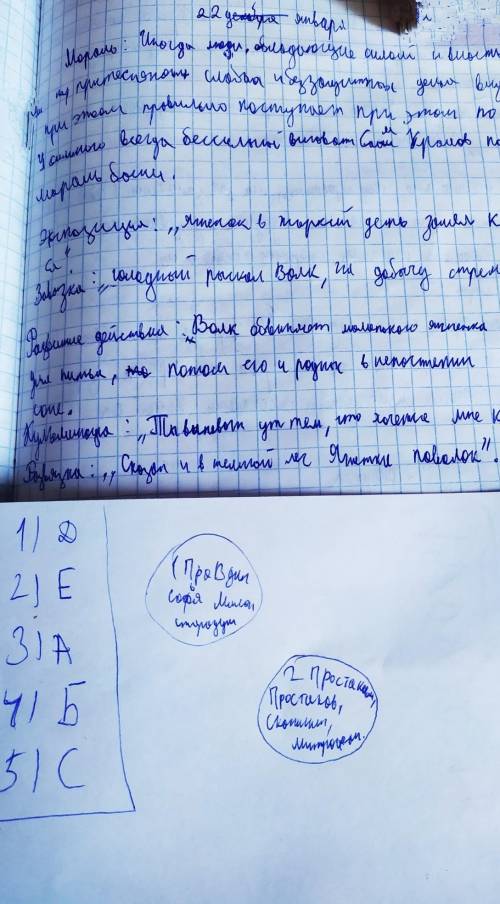 22 декабря января
Мораль: Иногда люди, обладающие силой и власть
притесняют слабых и беззащитных
при этом правильно поступает при этом по
У сильного всегда бессильный виноват Сам Крылов по
мораль басни.
Экспозиция: „Ягненок в жаркий день зашел к
ся"
Завязка: „голодный рыскал Волк, на добычу стрем
Развитие действия: Волк обвиняет маленького ягненка
для питья, то потом его и родных в непочтении
соне.
Кульминация: „Ты виноват уж тем, что хочется мне к
Развязка: „Сказал и в темный лес Ягненка поволок".
1) Д
2) Е
3) А
4) Б
5) С
1 Правдин
Софья Милон,
стародум
2 Простакова,
Простаков,
Скотинин,
Митрофан.